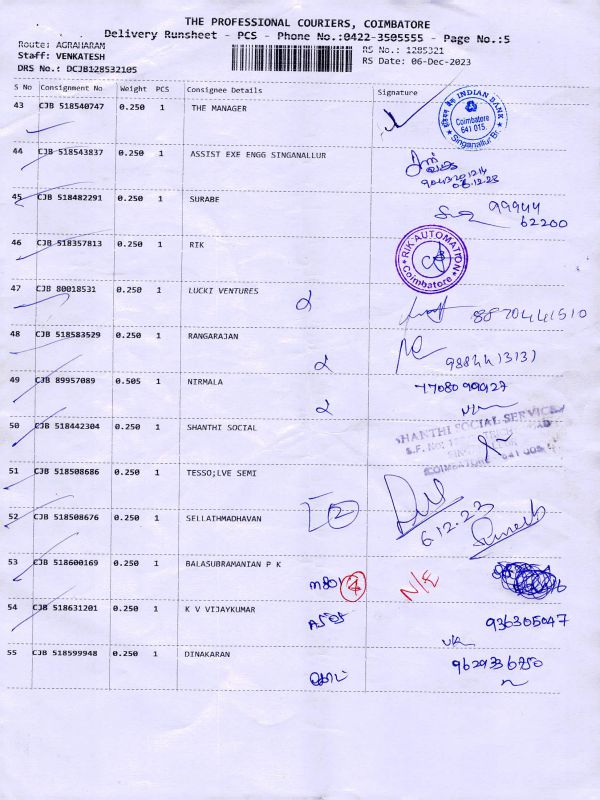 THE PROFESSIONAL COURIERS, COIMBATORE
Delivery Runsheet - PCS - Phone No.:0422-3505555 - Page No.:5
Route: AGRAHARAM
RS No.: 1285321
Staff: VENKATESH
RS Date: 06-Dec-2023
DRS No.: DCJB128532105
S No Consignment No Weight PCS Consignee Details Signature
43 CJB 518540747 0.250 1 THE MANAGER
INDIAN BANK
Coimbatore
641 015.
Singanallur Br.
44 CJB 518543837 0.250 1 ASSIST EXE ENGG SINGANALLUR
06.12.23
45 CJB 518482291 0.250 1 SURABE
99944
62200
46 CJB 518357813 0.250 1 RIK
RIK AUTOMATION
Coimbatore
47 CJB 80018531 0.250 1 LUCKI VENTURES
8870441510
48 CJB 518583529 0.250 1 RANGARAJAN
9884413131
49 CJB 89957089 0.505 1 NIRMALA
7708099927
50 CJB 518442304 0.250 1 SHANTHI SOCIAL
SHANTHI SOCIAL SERVICE
51 CJB 518508686 0.250 1 TESSO;LVE SEMI
52 CJB 518508676 0.250 1 SELLATHMADHAVAN
2
6.12.23
53 CJB 518600169 0.250 1 BALASUBRAMANIAN P K
4
54 CJB 518631201 0.250 1 K V VIJAYKUMAR
936305047
55 CJB 518599948 0.250 1 DINAKARAN